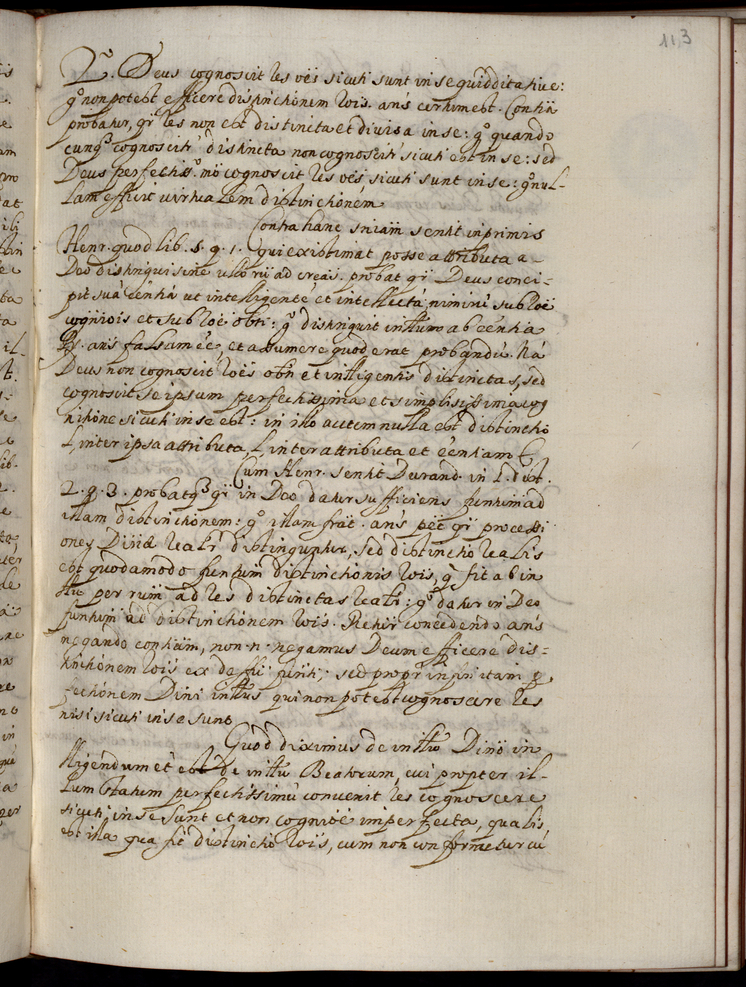 113
2º. Deus cognoscit res oẽs sicuti sunt in se quidditative:
gº non potest efficere distinctionem rõis. ans certum est. Conñã
probatur, qr̃ res non est distincta et divisa in se: gº quando
cunq3 cognoscit' distincta non cognoscit' sicuti est in se: sed
Deus perfectissº mõ cognoscit res oẽs, sicuti sunt in se: gº nul-
lam efficit virtualem distinctionem
Contra hanc sniam sentit inprimis
Henr. quodlib. 5. q. 1. qui existimat posse attributa a
Deo distingui sine ullo rũ ad creãs. probat qr̃ Deus conci-
pit suã eẽntiã ut intelligentẽ et intellectã, nimirũ sub rõẽ
cognitõis et sub rõẽ obti: gº distinguit intllum ab eẽntia
Rx. ans falsam eẽ, et assumere quod erat probandũ. Nã
Deus non cognoscit rõẽs obti et intlligentis distinctas, sed
cognoscit se ipsum perfectissima et simplicissima cog
nitione sicuti in se est: in illo autem nulla est distinctio
l, inter ipsa attributa, l, inter attributa et eẽntiam
Cum Henr. sentit Durand. in 1. dist.
2. q. 3. probatq3 qr̃ in Deo datur sufficiens funtum ad
illam distinctionem: gº illam fraẽ. ans pẽt qr̃ processi
ones Divĩæ realr̃ distinguntur, sed distinctio realis
est quodamodo funtum distinctionis rõis, q̃ fit ab in
tllu per rum ad res distinctas realr̃: gº datur in Deo
funtum ad distinctionem rõis. Rẽtur concedendo ans
negando contiam, non .n. negamus Deum efficere dis=
tinctionem rõis ex deftu funti; sed propr̃ infinitam p.
fectionem Divĩni intllus qui non potest cognoscere res
nisi sicuti in se sunt
Quod diximus de intllu Divĩnõ in
tlligendum et est de intllu Beatorum, cui propter il-
lum statum perfectissimũ convenit res cognoscere
sicuti in se sunt et non cognitiõẽ imperfecta, qualis
est illa qua fit distinctio rõis, cum non conformetur cũ